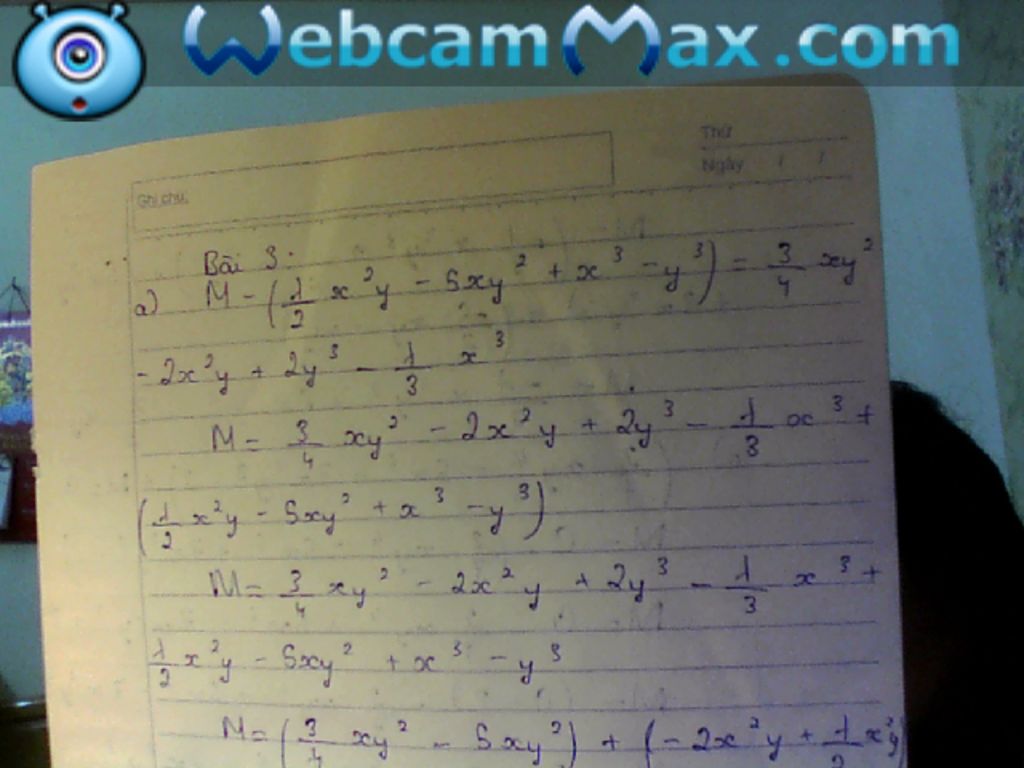 WebcamMax.com
Thứ
Ngày / /
Ghi chú:
Bài 3:
a) M - (1/2 x²y - 5xy² + x³ - y³) = 3/4 xy²
- 2x²y + 2y³ - 1/3 x³
M = 3/4 xy² - 2x²y + 2y³ - 1/3 x³ +
(1/2 x²y - 5xy² + x³ - y³)
M = 3/4 xy² - 2x²y + 2y³ - 1/3 x³ +
1/2 x²y - 5xy² + x³ - y³
M = (3/4 xy² - 5xy²) + (-2x²y + 1/2 x²y)